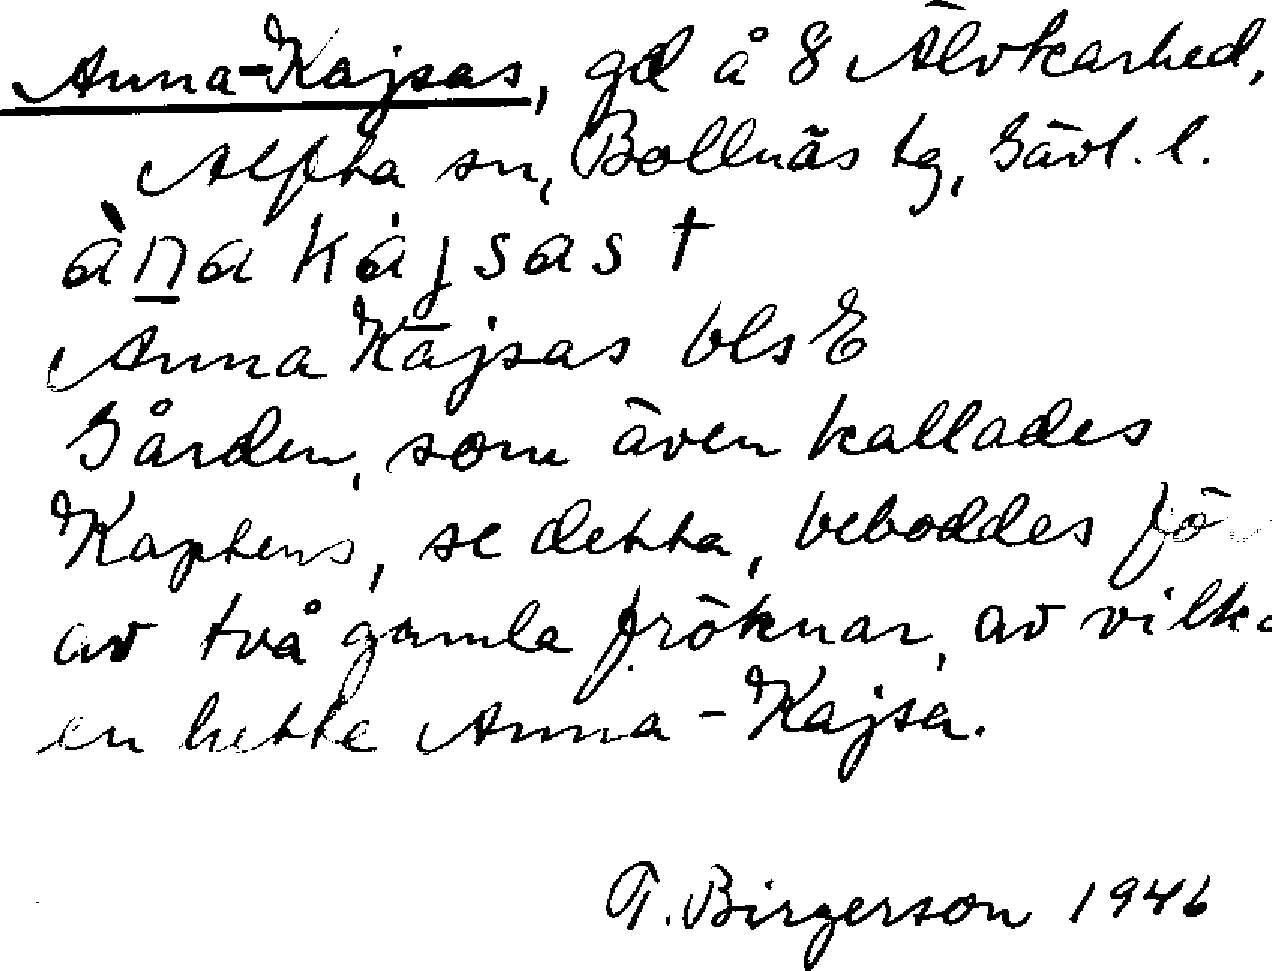 Anna-Kajsas, gd å 8 Älvkarhed,
Alfta sn, Bollnäs tg, Gävl. l.
àna kájsas †
Anna Kajsas bls E
Gården, som även kallades
Kaptens, se detta, beboddes för
av två gamla fröknar, av vilka
en hette Anna-Kajsa.
T. Birgerson 1946